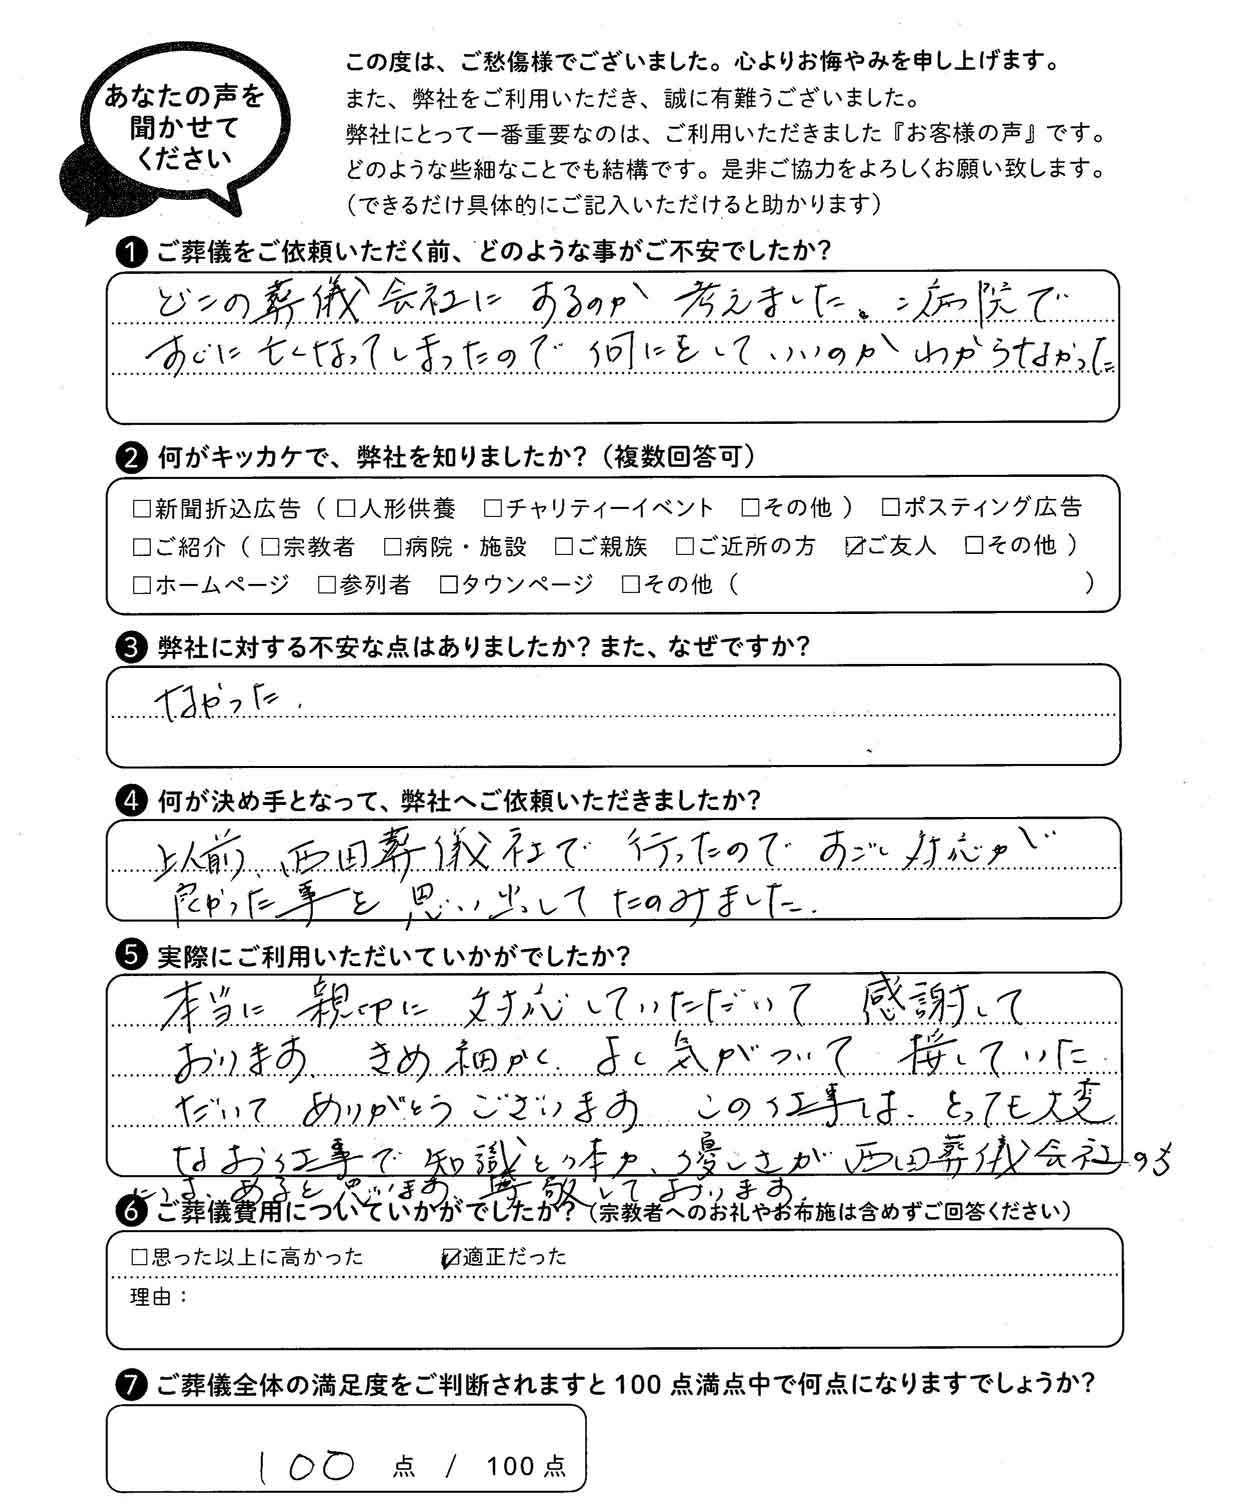 あなたの声を
聞かせて
ください
この度は、ご愁傷様でございました。心よりお悔やみを申し上げます。
また、弊社をご利用いただき、誠に有難うございました。
弊社にとって一番重要なのは、ご利用いただきました『お客様の声』です。
どのような些細なことでも結構です。是非ご協力をよろしくお願い致します。
（できるだけ具体的にご記入いただけると助かります）
❶ ご葬儀をご依頼いただく前、どのような事がご不安でしたか？
どこの葬儀会社にするのか 考えました。病院で
すぐに亡くなってしまったので 何にをしていいのか わからなかった
❷ 何がキッカケで、弊社を知りましたか？（複数回答可）
□新聞折込広告（□人形供養 □チャリティーイベント □その他） □ポスティング広告
□ご紹介（□宗教者 □病院・施設 □ご親族 □ご近所の方 ☑ご友人 □その他）
□ホームページ □参列者 □タウンページ □その他（ ）
❸ 弊社に対する不安な点はありましたか？また、なぜですか？
なかった.
❹ 何が決め手となって、弊社へご依頼いただきましたか？
以前、西田葬儀社で 行ったので すごく対応が
良かった事を 思い出してたのみました.
❺ 実際にご利用いただいていかがでしたか？
本当に 親切に 対応していただいて 感謝して
おります. きめ細かく. よく気がついて 接していた
だいて ありがとうございます この仕事は. とっても大変
なお仕事で 知識と 優しさが 西田葬儀会社の
には、あると思います. 尊敬しております.
❻ ご葬儀費用についていかがでしたか？（宗教者へのお礼やお布施は含めずご回答ください）
□思った以上に高かった ☑適正だった
理由：
❼ ご葬儀全体の満足度をご判断されますと100点満点中で何点になりますでしょうか？
100 点 / 100点